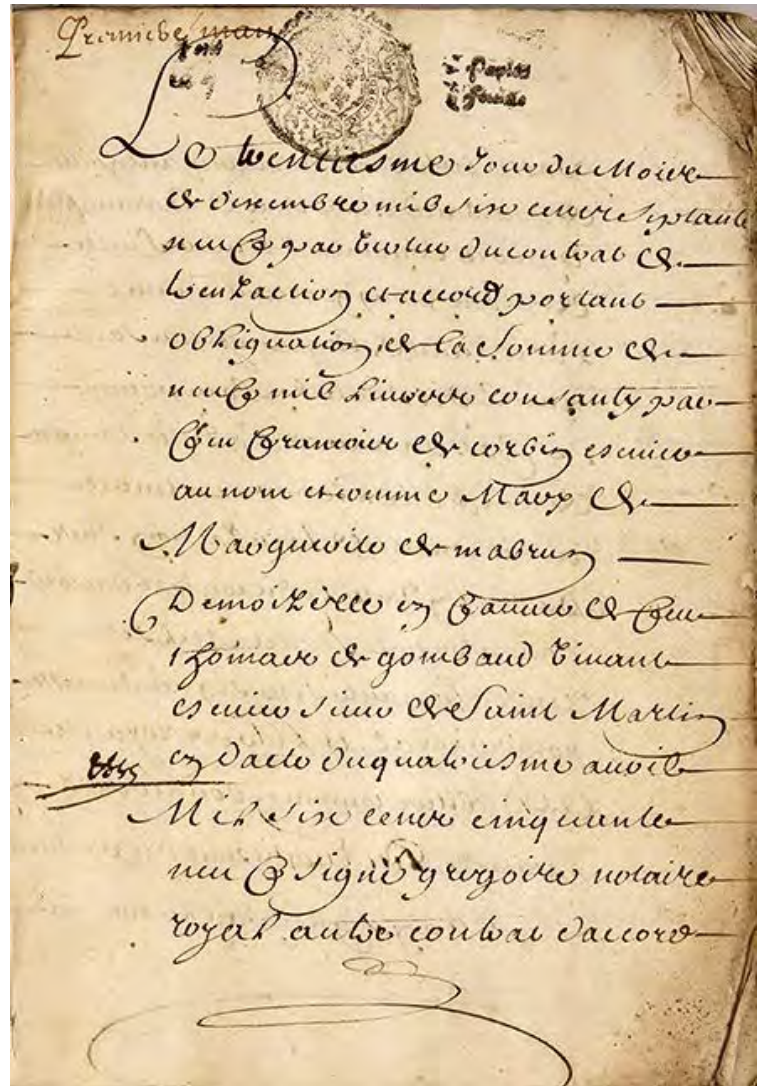 Le trentiesme Jour du Mois
de dexembre mil six cens septante
neuf par vertu du contrat de
trenzaction et accord portant
obliguation de la Somme de
neuf mil livres consanty par
feu francois de corbier escuier
au nom et comme Mary de
Marguerite de mabrun
Demoizelle en faveur de feu
thomas de gombaud vivant
escuier sieur de Saint Martin
en dacte du quatriesme avril
Mil six cens cinquante
neuf signé gregoire notaire
royal autre contrat daccord